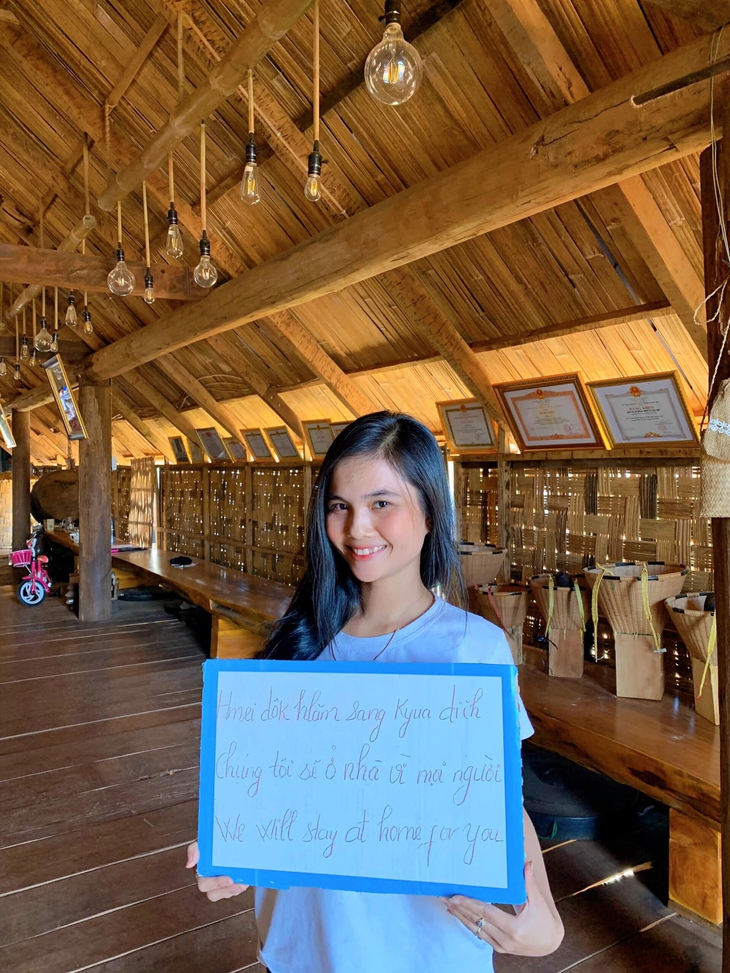 Hmei dôk hlăm sang kyua diih
Chúng tôi sẽ ở nhà vì mọi người
We will stay at home for you